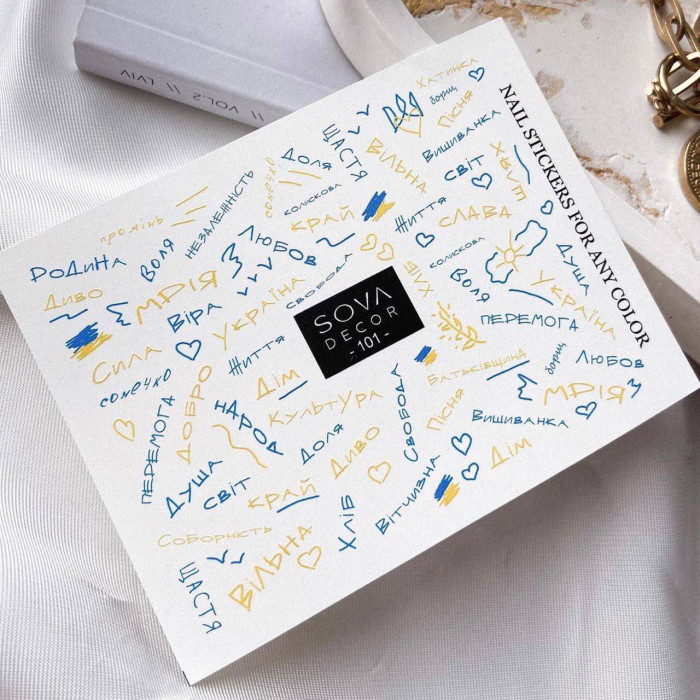 // VOL.2 // LVIV
NAIL STICKERS FOR ANY COLOR
Хатинка
борщ
Пісня
Вишиванка
світ
Вільна
Щастя
Доля
сонечко
колискова
Край
Життя
Слава
Незалежність
промінь
Родина
Воля
Любов
Диво
Мрія
Віра
Україна
Свобода
Хліб
колискова
Воля
Душа
Україна
SOVA
DECOR
- 101 -
Перемога
Сила
сонечко
Життя
Дім
Батьківщина
борщ
Любов
Мрія
Перемога
Добро
Народ
Культура
Свобода
Пісня
Вишиванка
Доля
Диво
Дім
Душа
світ
Край
Хліб
Вітчизна
Соборність
Щастя
Вільна